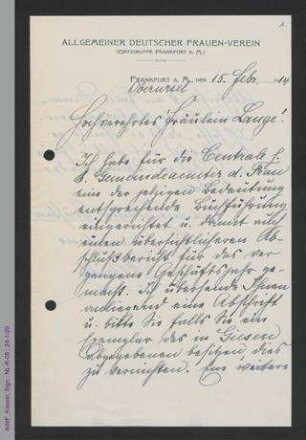 1.
ALLGEMEINER DEUTSCHER FRAUEN-VEREIN
(ORTSGRUPPE FRANKFURT A. M.)
FRANKFURT A. M., DEN 15. Febr. 14
Oberursel
Hochverehrtes Fräulein Lange!
Ich habe für die Centrale f.
d. Gemeindeaemter d. Frau
eine der jetzigen Bedeutung
entsprechende Buchführung
eingerichtet u. damit auch
einen übersichtlicheren Ab-
schlußbericht für das ver-
gangene Geschäftsjahr ge-
macht. Ich übersende Ihnen
einliegend eine Abschrift
u. bitte Sie falls Sie ein
Exemplar des in Gießen
abgegebenen besitzen, dies
zu vernichten. Eine weitere
AddF, Kassel, Sign.: NL-K-08 ; 24-1/20